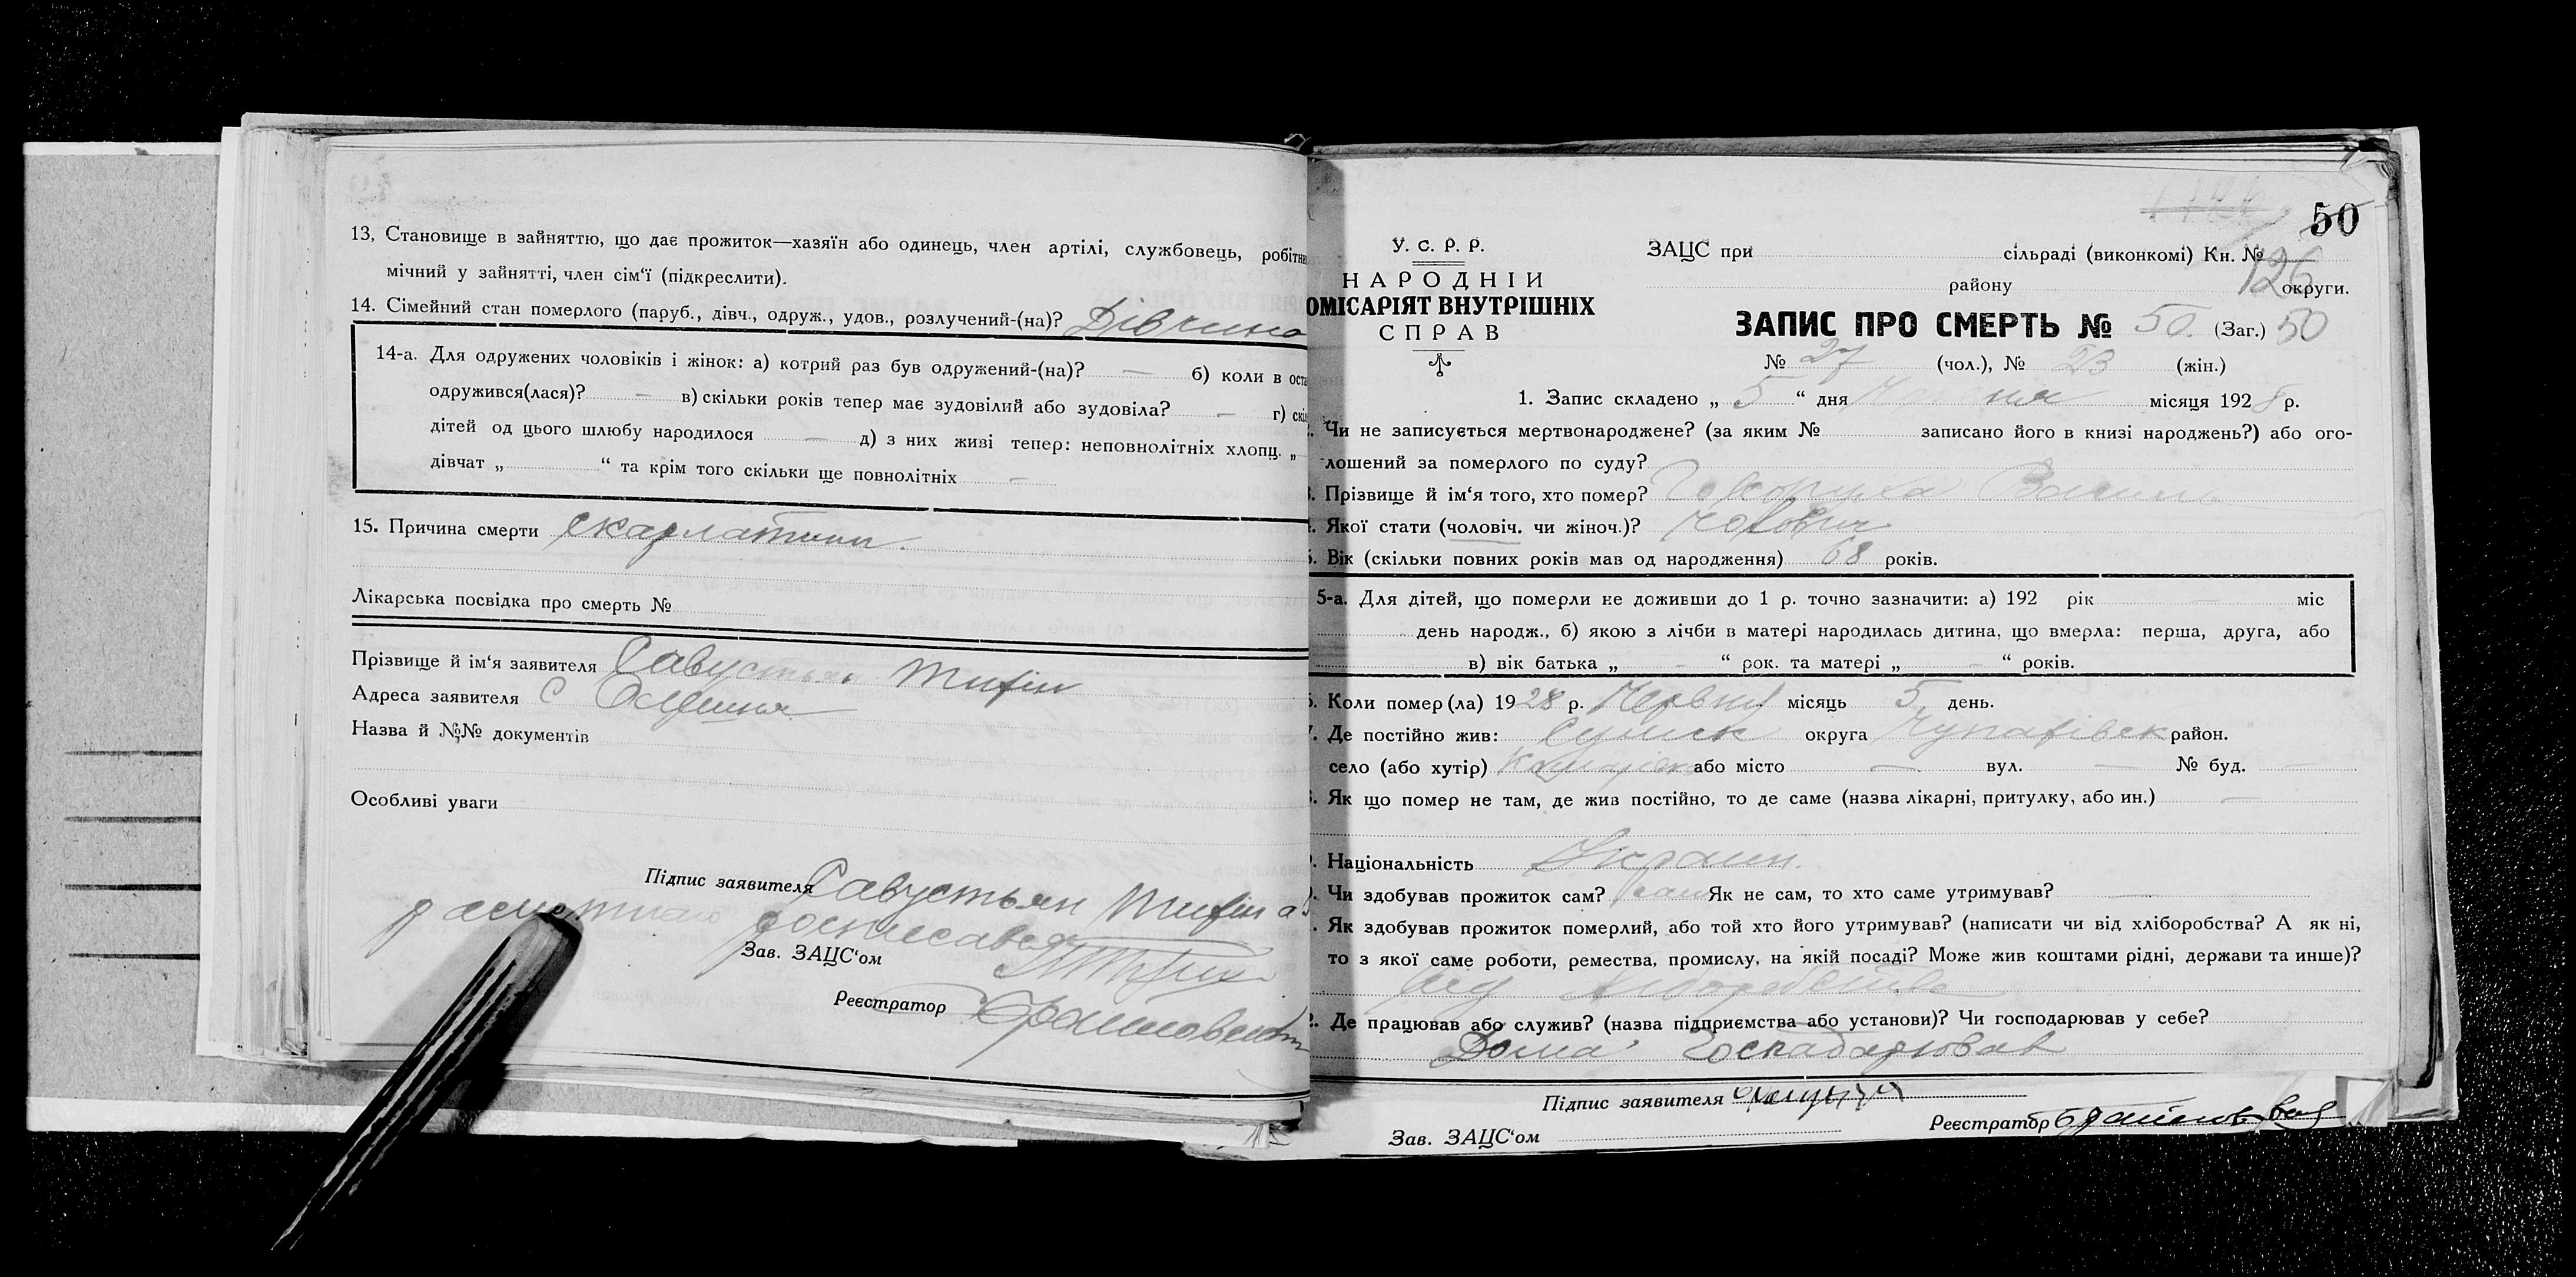 13, Становище в зайняттю, що дає прожиток—хазяїн або одинець, член артілі, службовець,
мічний у зайнятті, член сім'ї (підкреслити).
14. Сімейний стан померлого (паруб., дівч., одруж., удов., розлучений-(на)? Дівчина
14-а. Для одружених чоловіків і жінок: а) котрий раз був одружений-(на)? — б) коли в
одружився(лася)? — в) скільки років тепер має зудовілий або зудовіла? — г)
дітей од цього шлюбу народилося — д) з них живі тепер: неповнолітніх хлопц. „
дівчат „ “ та крім того скільки ще повнолітніх —
15. Причина смерти скарлатини.
Лікарська посвідка про смерть №
Прізвище й ім'я заявителя Савустьян
Адреса заявителя С
Назва й №№ документів
Особливі уваги
Підпис заявителя Савустьян
росписався
Зав. ЗАЦС'ом
Реєстратор
50
У. С. Р. Р.
НАРОДНІЙ
ОМІСАРІЯТ ВНУТРІШНІХ
СПРАВ
ЗАЦС при сільраді (виконкомі) Кн. №
126
району округи.
ЗАПИС ПРО СМЕРТЬ № 50. (Заг.) 50
№ 27 (чол.), № 23 (жін.)
1. Запис складено „ 5 “ дня місяця 1928 р.
Чи не записується мертвонароджене? (за яким № записано його в книзі народжень?) або ого-
лошений за померлого по суду?
Прізвище й ім'я того, хто помер? Василь
Якої стати (чоловіч. чи жіноч.)? Чоловіч
Вік (скільки повних років мав од народження) 68 років.
5-а. Для дітей, що померли не доживши до 1 р. точно зазначити: а) 192 рік — міс
день народж., б) якою з лічби в матері народилась дитина, що вмерла: перша, друга, або
в) вік батька „ — “ рок. та матері „ — “ років.
Коли помер (ла) 1928 р. Червня місяць 5 день.
Де постійно жив: Сумськ округа Чупахівськ район.
село (або хутір) або місто — вул. — № буд. —
Як що помер не там, де жив постійно, то де саме (назва лікарні, притулку, або ин.) —
Національність Україн.
Чи здобував прожиток сам? Сам Як не сам, то хто саме утримував? —
Як здобував прожиток померлий, або той хто його утримував? (написати чи від хліборобства? А як ні,
то з якої саме роботи, ремества, промислу, на якій посаді? Може жив коштами рідні, держави та инше)?
Від хліборобства
Де працював або служив? (назва підприємства або установи)? Чи господарював у себе?
Дома Госпадарював
Підпис заявителя
Реєстратор
Зав. ЗАЦС'ом